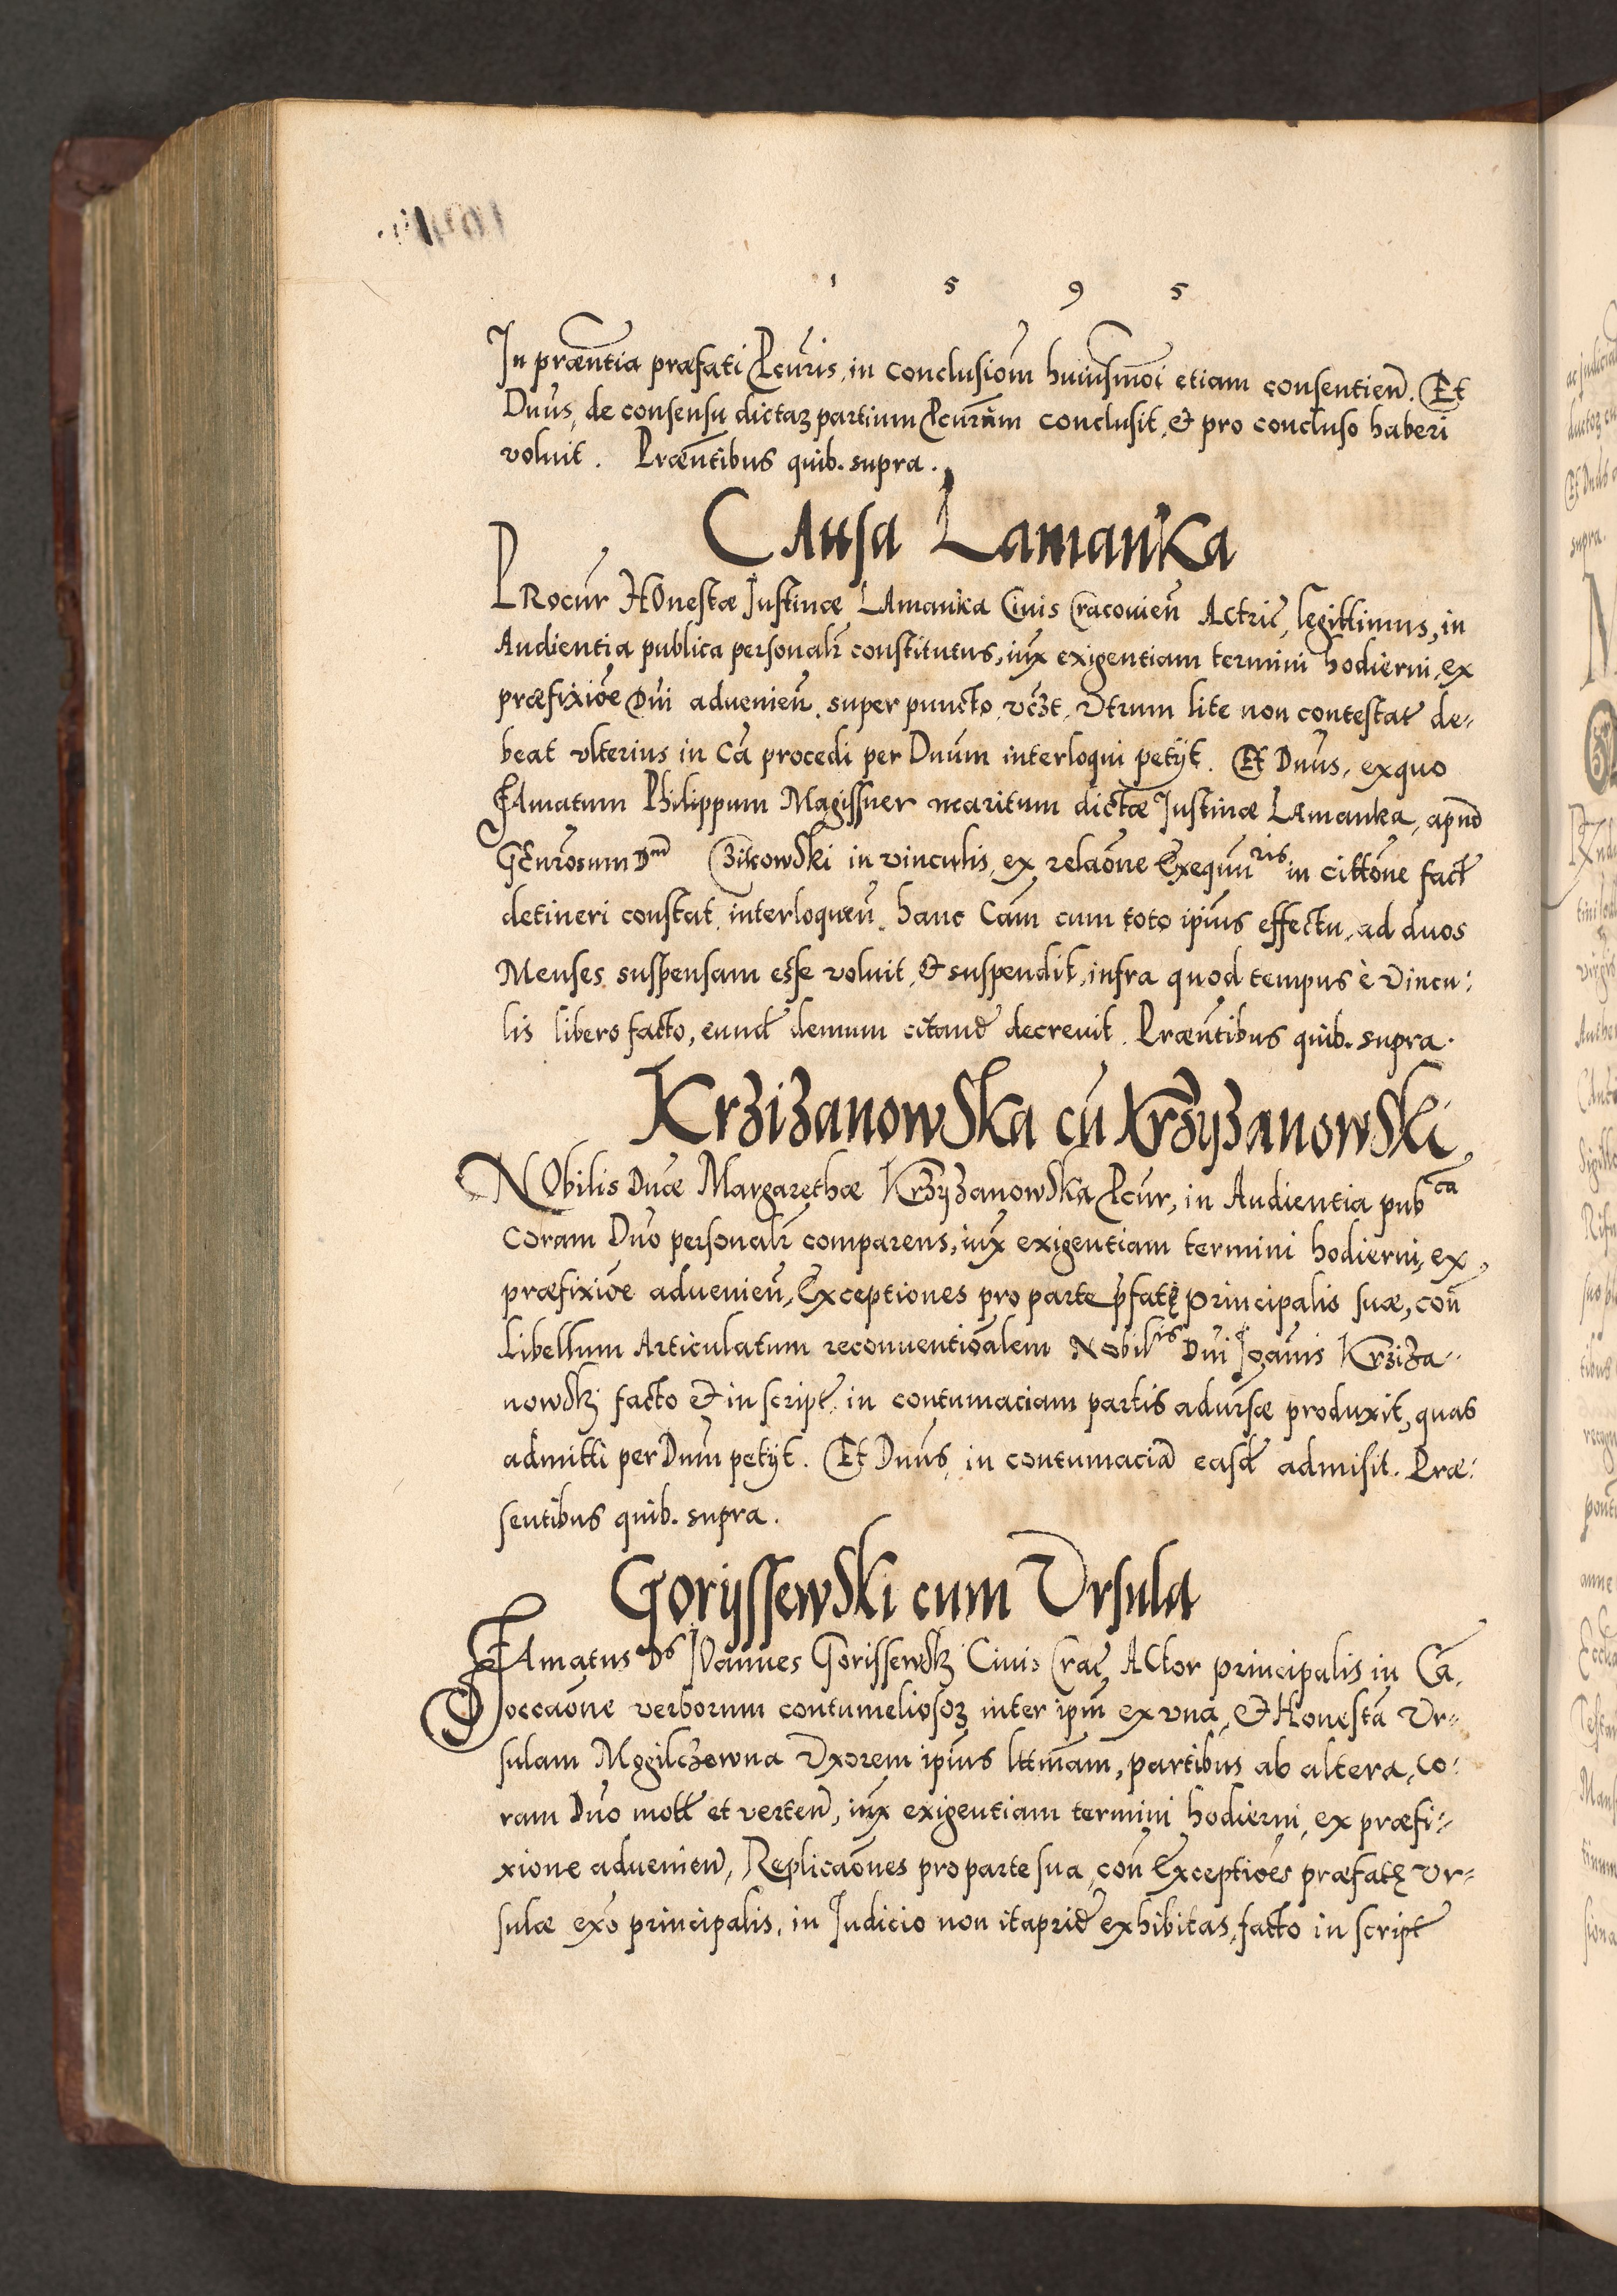 1 5 9 5
In præntia præfati Pcuris, in conclusiom huiusmoi etiam consentien. Et
Dnus, de consensu dictaꝝ partium Pcurum conclusit, & pro concluso haberi
voluit. Præntibus quib. supra.
CAusa Lamanka
PRocur HOnestæ Iustinæ LAmanka Ciuis Cracouien Actric, legittimus, in
Audientia publica personalr constitutus, iux exigentiam termini hodierni, ex
præfixioe Dni aduenien. super puncto, vczt, Vtrum lite non contestat̃ de-
beat vlterius in Ca procedi per Dnum interloqui petÿt. Et Dnus, exquo
FAmatum Philippum Magissner maritum dictæ Iustinæ LAmanka, apud
GEnrosum Dnm Czikowski in vinculis, ex relaone Exequuris in cittone fact̃
detineri constat, interloquen. hanc Cam cum toto ipius effectu, ad duos
Menses suspensam esse voluit, & suspendit, infra quod tempus è Vincu:
lis libero facto, eund̃ demum citand̃ decreuit. Præntibus quib. supra.
Krzizanowska cũ Krzyzanowski
NObilis Dnæ Margarethæ Krzyzanowska Pcur, in Audientia pubca
coram Dno personalr comparens, iux exigentiam termini hodierni, ex
præfixioe aduenien, Exceptiones pro parte pfatę principalis suæ, con
Libellum Articulatum reconuentioalem Nobilis Dni Ioannis Krziza-
nowski facto & in script̃ in contumaciam partis aduersæ produxit, quas
admitti per Dnum petÿt. Et Dnus, in contumaciã easd̃ admisit. Præ:
sentibus quib. supra.
Gorÿssewski cum Vrsula
FAmatus Ds IOannes Gorissewski Ciuis Crac̃ ACtor principalis in Ca,
occaone verborum contumeliosoꝝ inter ipm ex vna, & Honestã Vr-
sulam Mogilczowna Vxorem ipius lttmam, partibus ab altera, co:
ram Dno mott̃ et verten, iux exigentiam termini hodierni, ex præfi-
xione aduenien, Replicaones pro parte sua, con Exceptioes præfatę Vr-
sulæ exo principalis, in Iudicio non itaprid̃ exhibitas, facto in script̃